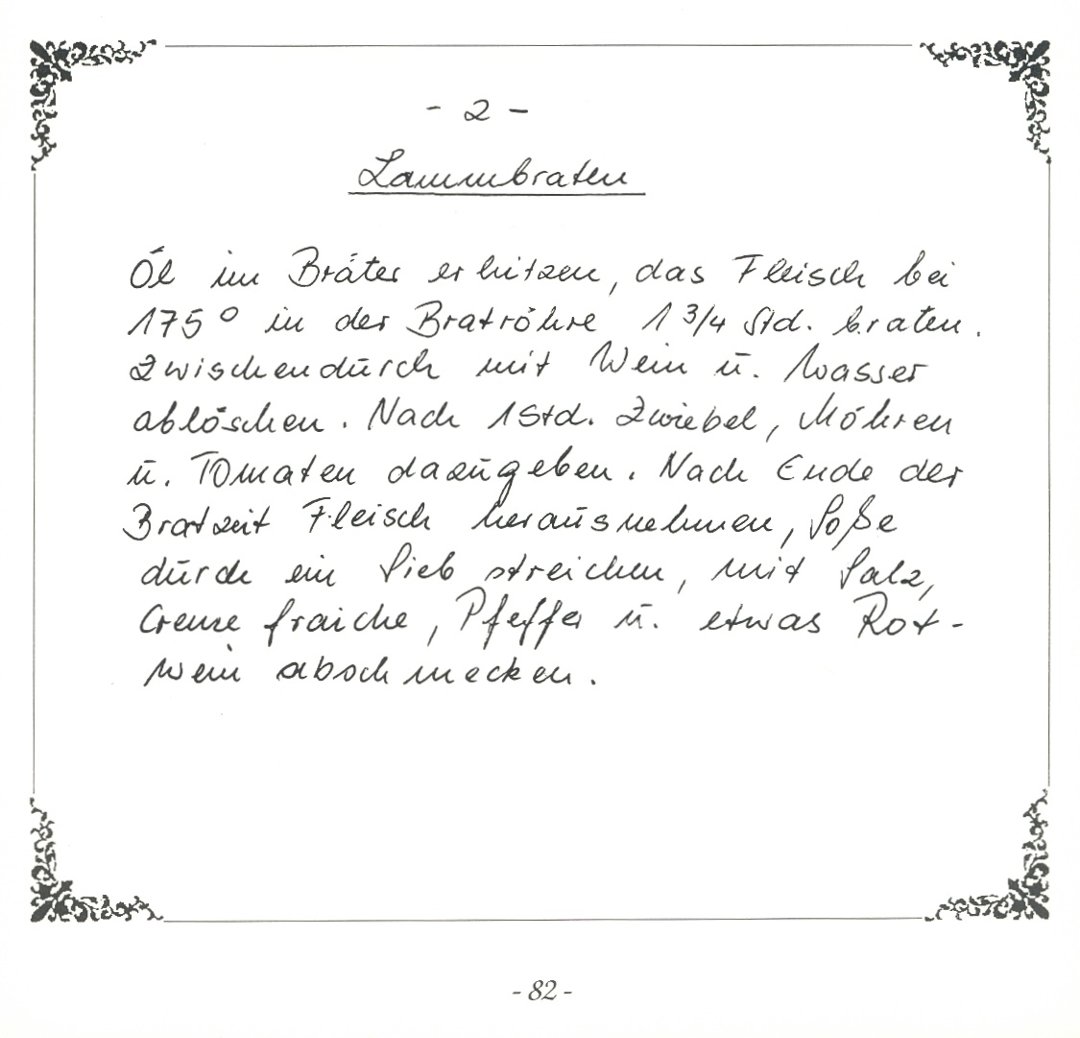 - 2 -
Lammbraten
Öl im Bräter erhitzen, das Fleisch bei
175° in der Bratröhre 1 3/4 Std. braten.
Zwischendurch mit Wein u. Wasser
ablöschen. Nach 1 Std. Zwiebel, Möhren
u. Tomaten dazugeben. Nach Ende der
Bratzeit Fleisch herausnehmen, Soße
durch ein Sieb streichen, mit Salz,
Creme fraiche, Pfeffer u. etwas Rot-
wein abschmecken.
- 82 -